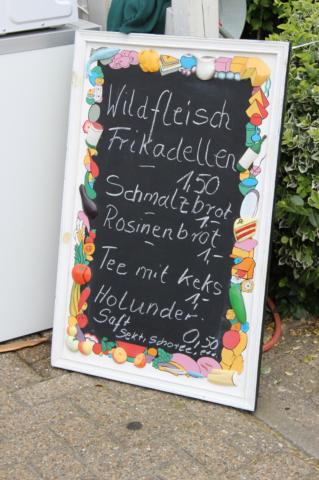 Wildfleisch
Frikadellen
1,50
Schmalzbrot
- 1,-
Rosinenbrot
- 1,-
Tee mit Keks
1,-
Holunder.
Saft 0,50
Sekt, Schorle...